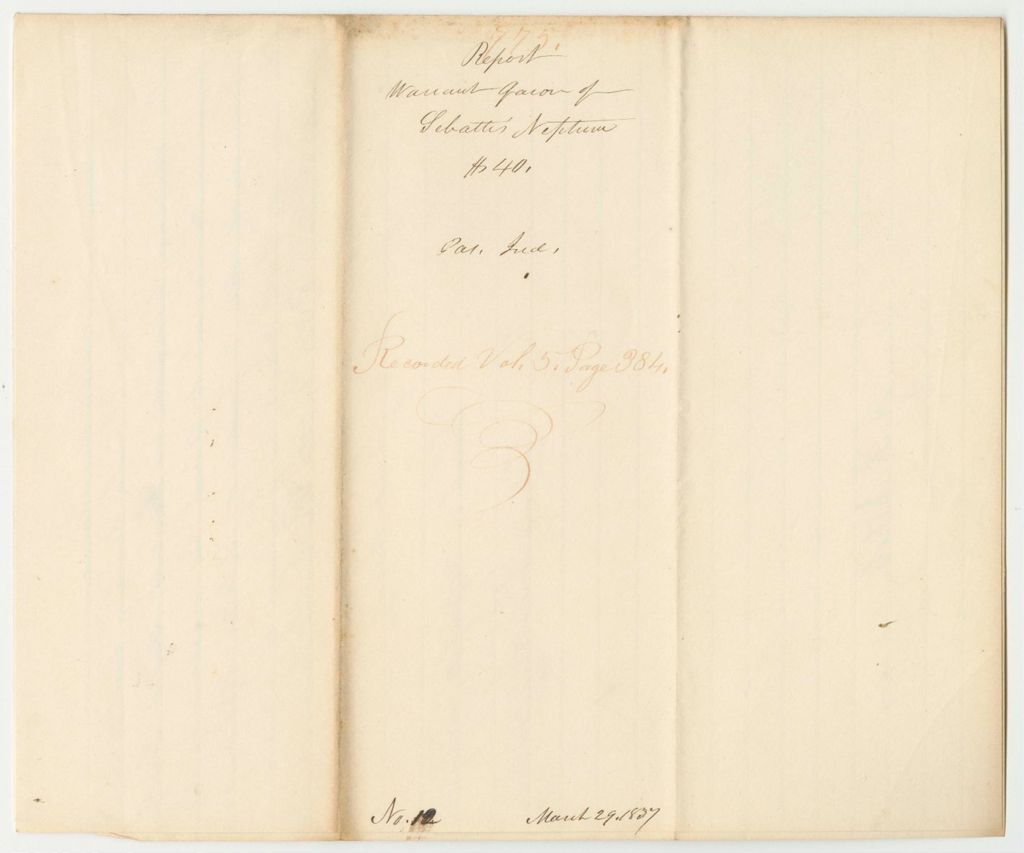 775.
Report
Warrant favor of
Sebattis Neptune
$40.
Pas. Ind.
Recorded Vol. 5. Page 384.
No. 12
March 29. 1837